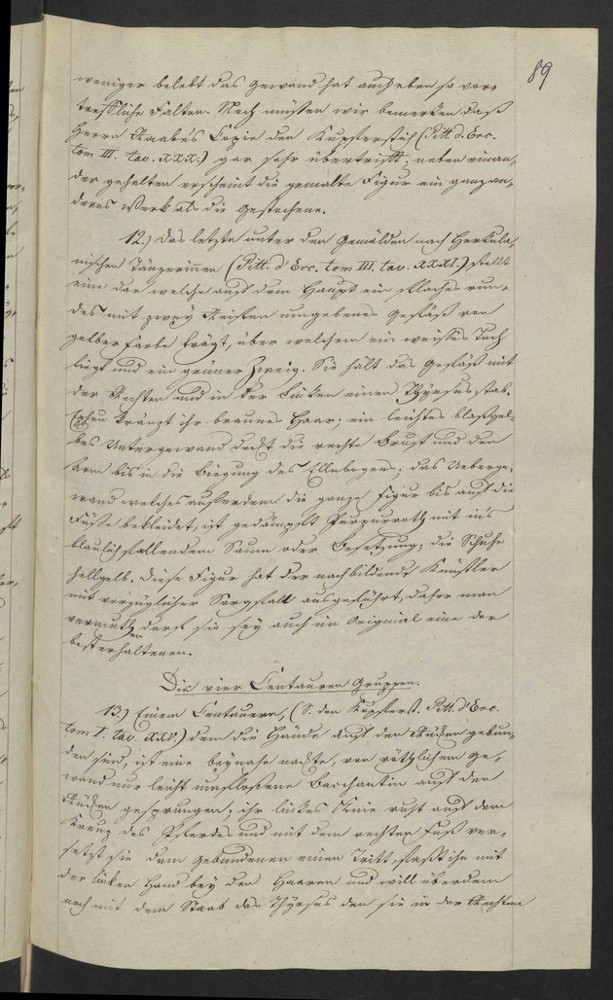 89
weniger belebt das Gewand hat auch eben so vor-
treffliche Falten. Noch müssen wir bemerken daß
Herrn Raabe's Copie den Kupferstich (Pitt. d. Erc.
tom III. tav. XXX.) gar sehr übertrifft; neben einan-
der gehalten erscheint die gemalte Figur ein ganz an-
deres Werk als die gestochene.
12.) Das letzte unter den Gemälden nach Herkula-
nischen Tänzerinnen (Pitt. d'Erc. tom III. tav. XXXI.) stellt
eine dar welche auf dem Haupt ein flaches run-
des mit zwey Reifen umgebenes Gefäß von
gelber Farbe trägt, über welchem ein weisses Tuch
liegt und ein grüner Zweig. Sie hält das Gefäß mit
der Rechten und in der Linken einen Thyrsusstab.
Epheu kränzt ihr braunes Haar; ein leichtes blaßgel-
bes Untergewand deckt die rechte Brust und den
Arm bis in die Biegung des Ellenbogens; das Ueberge-
wand welches ausserdem die ganze Figur bis auf die
Füße bekleidet, ist gedämpft Purpurroth mit ins
blaulich fallendem Saum oder Besetzung; die Schuhe
hellgelb. Diese Figur hat der nachbildende Künstler
mit vorzüglicher Sorgfalt ausgeführt, daher man
vermuthen darf sie sey auch im Original eine der
besterhaltenen.
Die vier Centauren Gruppen.
13.) Einem Centauren, (S. den Kupferst. Pitt. d'Erc.
tom I. tav. XXV.) dem die Hände auf den Rücken gebun-
den sind, ist eine beynahe nackte, von röthlichem Ge-
wand nur leicht umflossene Bacchantin auf den
Rücken gesprungen; ihr linkes Knie ruht auf dem
Kreuz des Pferdes und mit dem rechten Fuß ver-
setzt sie dem Gebundenen einen Tritt, faßt ihn mit
der linken Hand bey den Haaren und will überdem
noch mit dem Staab des Thyrsus den sie in der Rechten